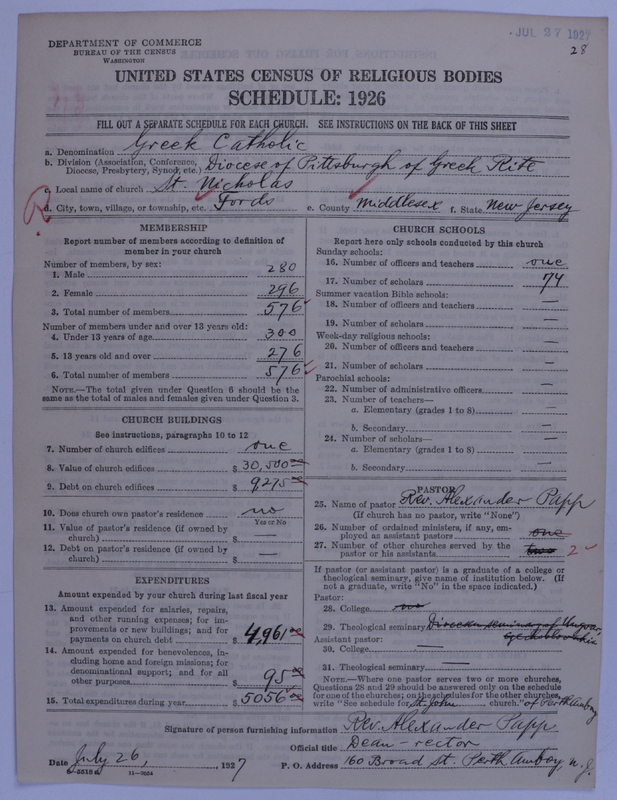 JUL 27 1927
28
DEPARTMENT OF COMMERCE
BUREAU OF THE CENSUS
WASHINGTON
UNITED STATES CENSUS OF RELIGIOUS BODIES
SCHEDULE: 1926
FILL OUT A SEPARATE SCHEDULE FOR EACH CHURCH. SEE INSTRUCTIONS ON THE BACK OF THIS SHEET
a. Denomination Greek Catholic
b. Division (Association, Conference, Diocese, Presbytery, Synod, etc.) Diocese of Pittsburgh of Greek Rite
c. Local name of church St. Nicholas
d. City, town, village, or township, etc. Fords e. County Middlesex f. State New Jersey
MEMBERSHIP
Report number of members according to definition of
member in your church
Number of members, by sex:
1. Male 280
2. Female 296
3. Total number of members 576
Number of members under and over 13 years old:
4. Under 13 years of age 300
5. 13 years old and over 276
6. Total number of members 576
NOTE.—The total given under Question 6 should be the
same as the total of males and females given under Question 3.
CHURCH BUILDINGS
See instructions, paragraphs 10 to 12
7. Number of church edifices one
8. Value of church edifices $ 30,500
9. Debt on church edifices $ 9275
10. Does church own pastor's residence? no
Yes or No
11. Value of pastor's residence (if owned by
church) $ —
12. Debt on pastor's residence (if owned by
church) $ —
EXPENDITURES
Amount expended by your church during last fiscal year
13. Amount expended for salaries, repairs,
and other running expenses; for im-
provements or new buildings; and for
payments on church debt $ 4,961
14. Amount expended for benevolences, in-
cluding home and foreign missions; for
denominational support; and for all
other purposes $ 95
15. Total expenditures during year $ 5056
CHURCH SCHOOLS
Report here only schools conducted by this church
Sunday schools:
16. Number of officers and teachers one
17. Number of scholars 74
Summer vacation Bible schools:
18. Number of officers and teachers —
19. Number of scholars —
Week-day religious schools:
20. Number of officers and teachers —
21. Number of scholars —
Parochial schools:
22. Number of administrative officers —
23. Number of teachers—
a. Elementary (grades 1 to 8) —
b. Secondary —
24. Number of scholars—
a. Elementary (grades 1 to 8) —
b. Secondary —
PASTOR
25. Name of pastor Rev. Alexander Papp
(If church has no pastor, write "None")
26. Number of ordained ministers, if any, em-
ployed as assistant pastors one
27. Number of other churches served by the
pastor or his assistants two 2
If pastor (or assistant pastor) is a graduate of a college or
theological seminary, give name of institution below. (If
not a graduate, write "No" in the space indicated.)
Pastor:
28. College
29. Theological seminary
Assistant pastor:
30. College —
31. Theological seminary —
NOTE.—Where one pastor serves two or more churches,
Questions 28 and 29 should be answered only on the schedule
for one of the churches; on the schedules for the other churches,
write "See schedule for St. John church." of Perth Amboy
Signature of person furnishing information Rev. Alexander Papp
Official title Dean - rector
Date July 26, 1927 P. O. Address 160 Broad St. Perth Amboy, N. J.
11—9024